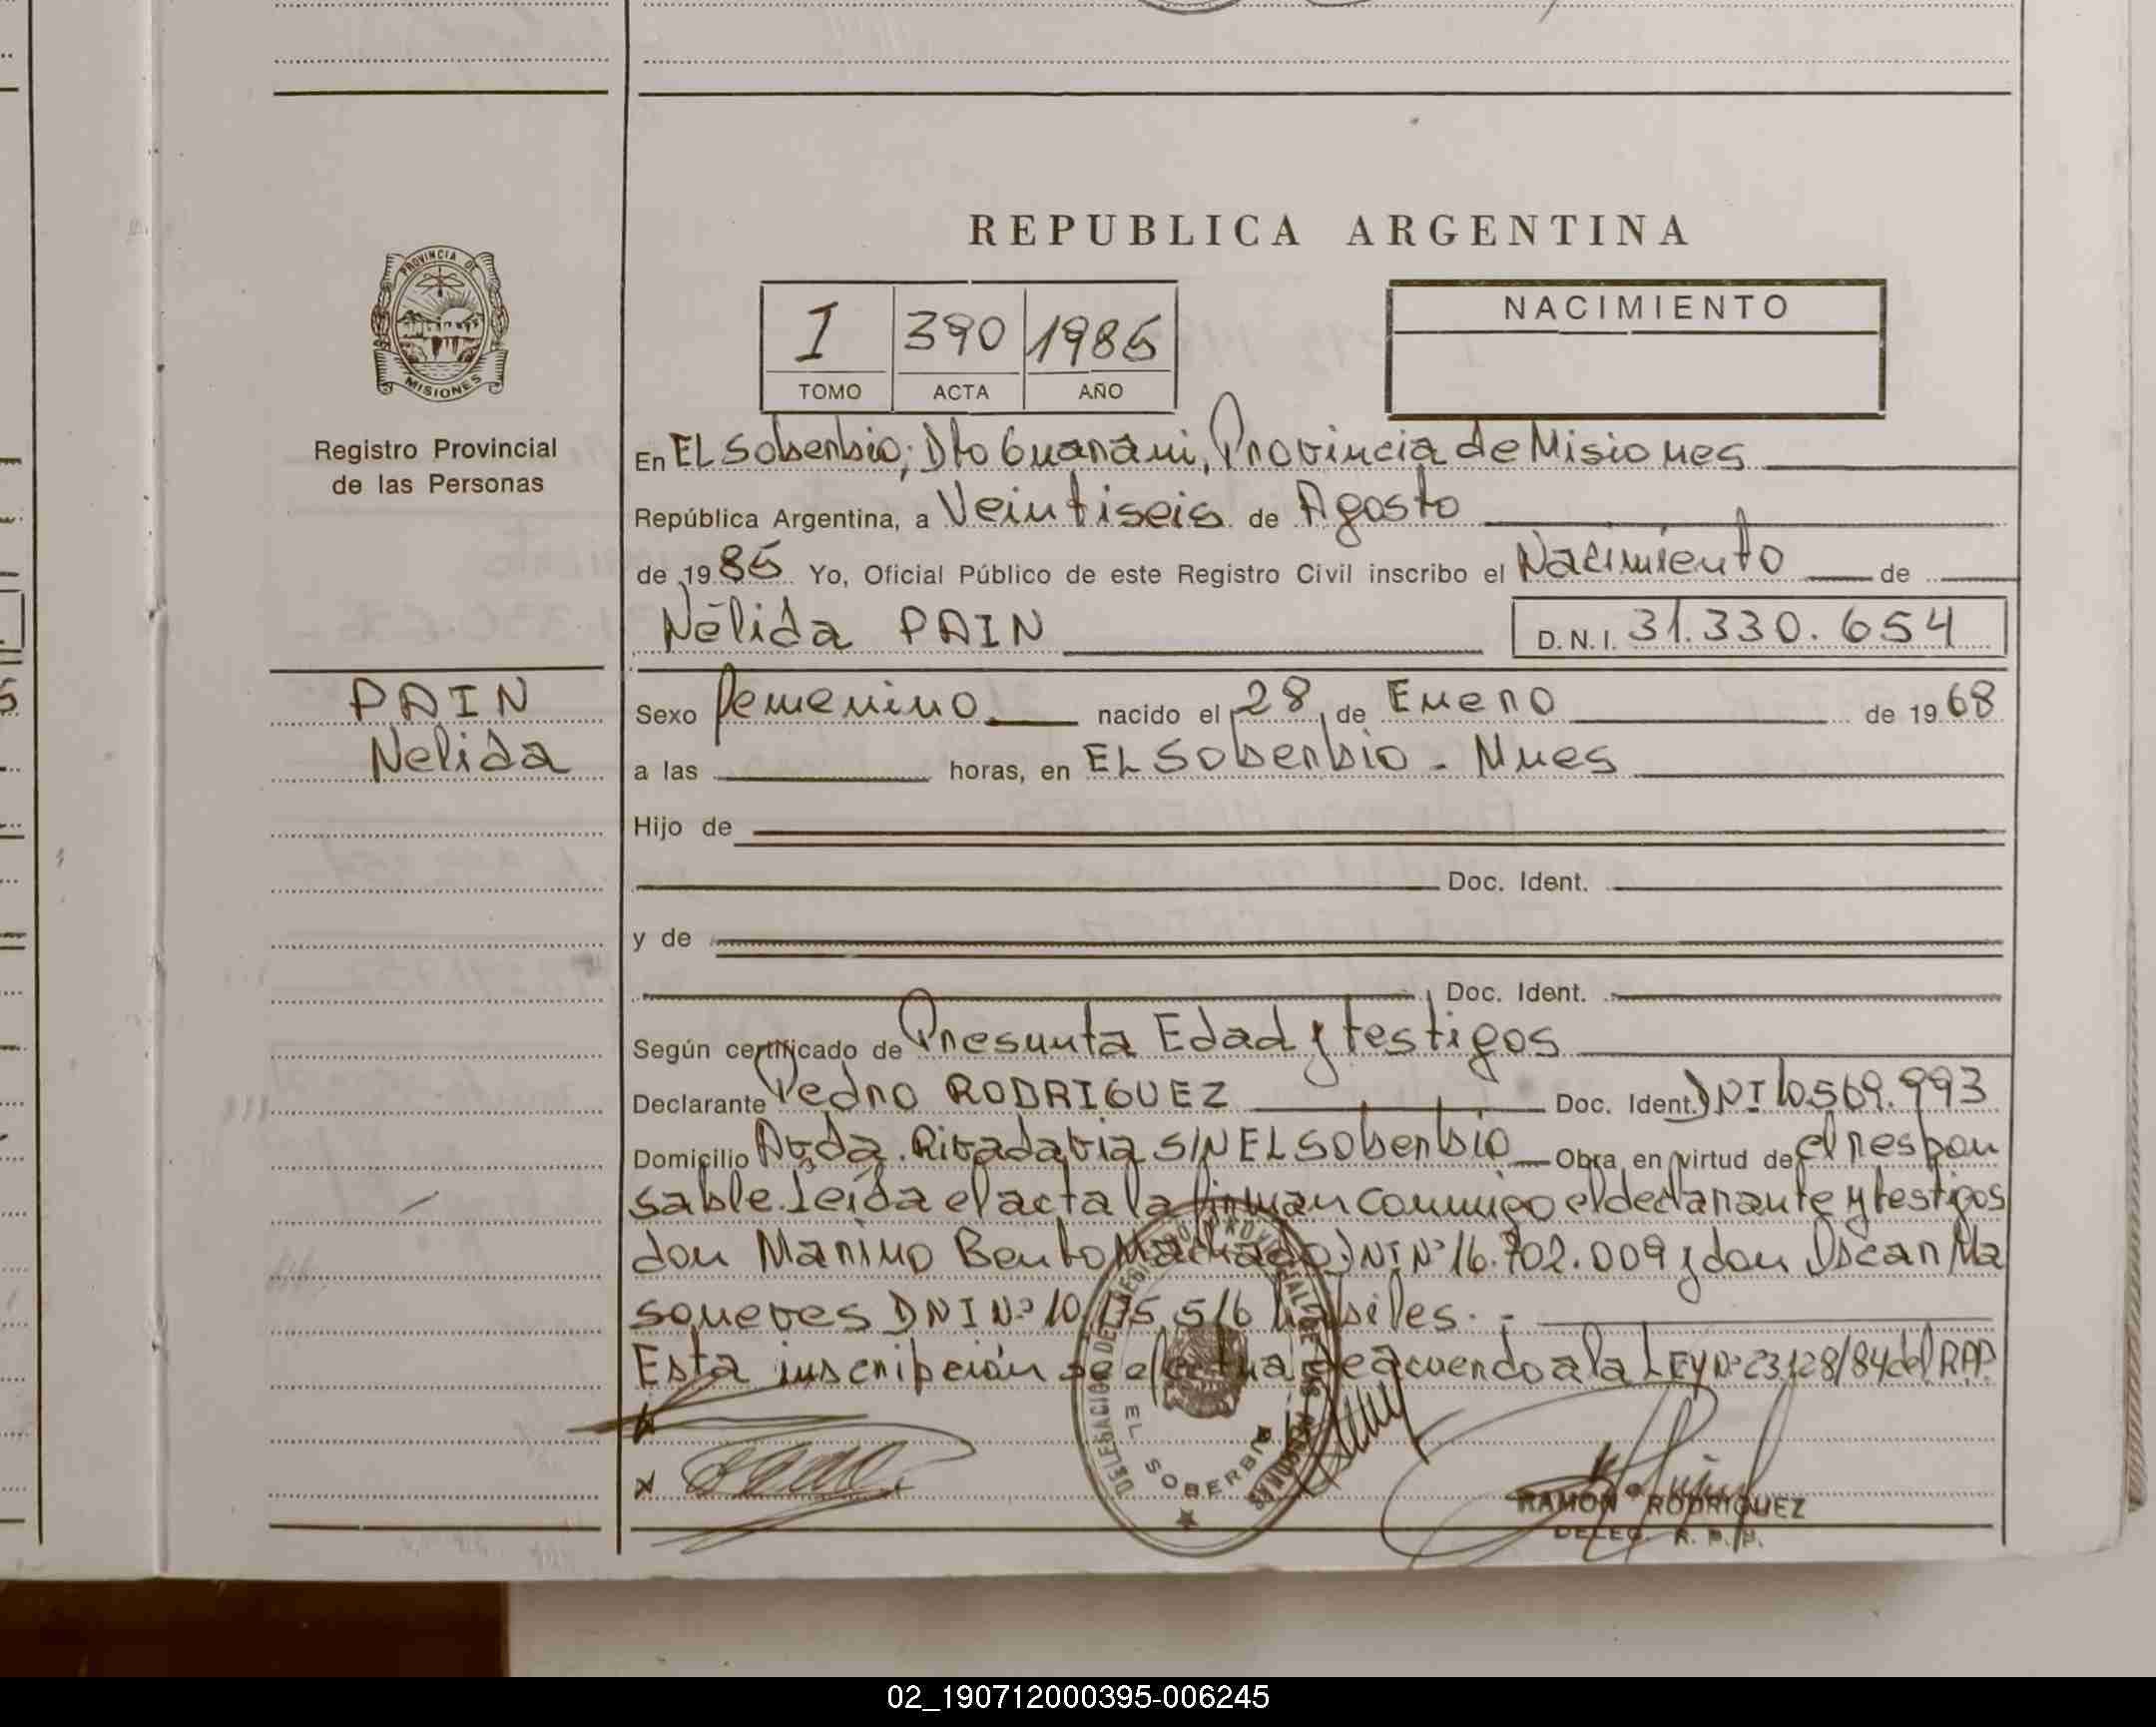 REPUBLICA ARGENTINA
PROVINCIA DE
MISIONES
Registro Provincial
de las Personas
I 390 1985
TOMO ACTA AÑO
NACIMIENTO
En EL Soberbio; Dto Guarani, Provincia de Misiones
República Argentina, a Veintiseis de Agosto
de 1985 Yo, Oficial Público de este Registro Civil inscribo el Nacimiento de
Nélida PAIN D.N.I. 31.330.654
PAIN
Nelida
Sexo femenino nacido el 28 de Enero de 1968
a las horas, en EL Soberbio - Mnes
Hijo de
Doc. Ident.
y de
Doc. Ident.
Según certificado de Presunta Edad y testigos
Declarante Pedro RODRIGUEZ Doc. Ident. DNI 10.569.993
Domicilio Avda. Rivadavia S/N EL Soberbio Obra en virtud de el respon
sable. Leída el acta la firman conmigo el declarante y testigos
don Marino Bento Machado DNI Nº 16.702.009 y don Oscar Ma
soneves DNI Nº 10.175.516 habiles. -
Esta inscripción se efectua de acuerdo a la LEY Nº 23.128/84 del R.P.P.
DELEGACION DEL REGISTRO PROVINCIAL DE LAS PERSONAS
EL SOBERBIO
RAMON RODRIGUEZ
DELEG. R. P. P.
02_190712000395-006245